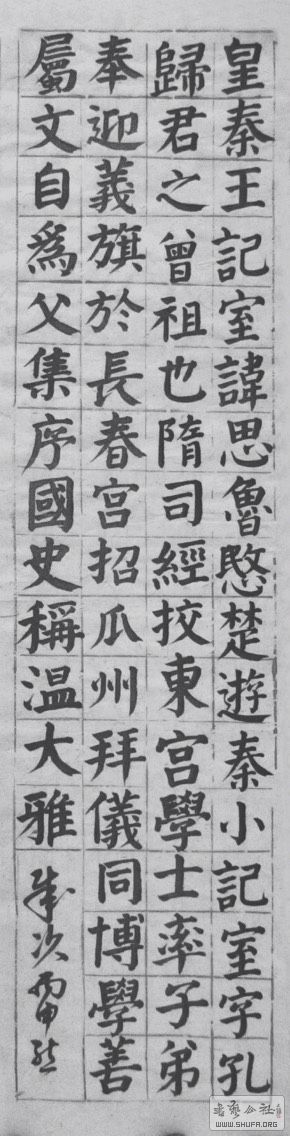 皇秦王記室諱思魯愍楚遊秦小記室字孔
歸君之曾祖也隋司經挍東宫學士率子弟
奉迎義旗於長春宫招瓜州拜儀同博學善
屬文自爲父集序國史稱温大雅 歲次丙申
書藝公社
WWW.SHUFA.ORG